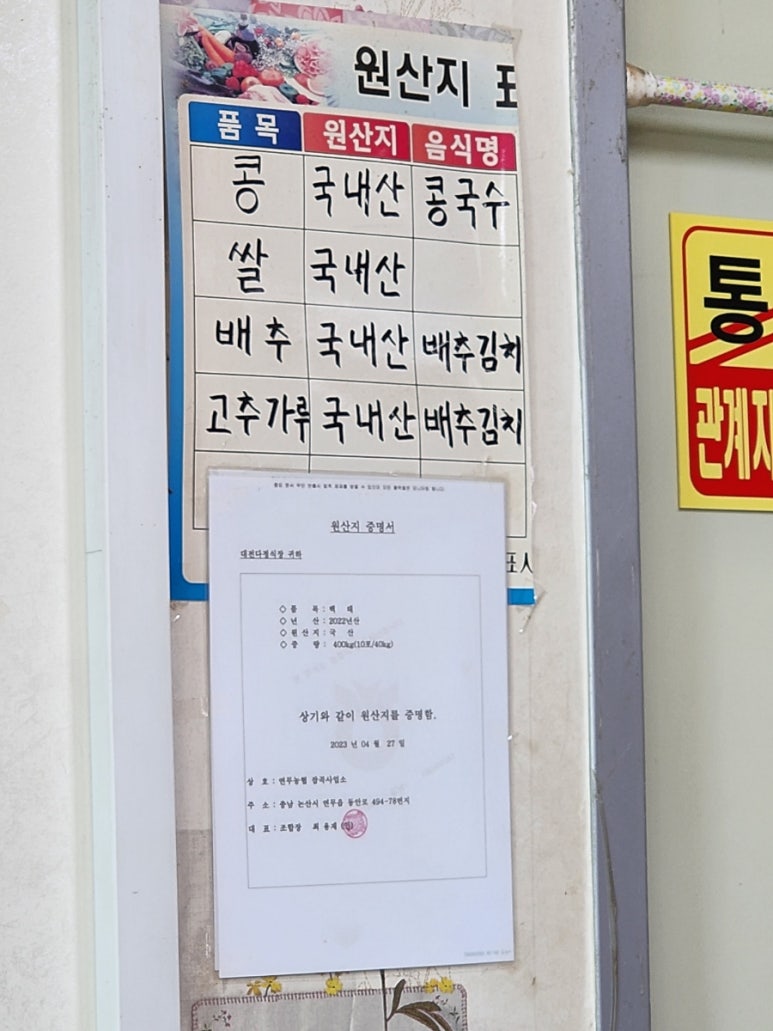 원산지 표
품목 원산지 음식명
콩 국내산 콩국수
쌀 국내산
배추 국내산 배추김치
고추가루 국내산 배추김치
표시
원산지 증명서
대전다정식장 귀하
◇ 품 목 : 백 태
◇ 년 산 : 2022년산
◇ 원 산 지 : 국 산
◇ 중 량 : 400kg(10포/40kg)
상기와 같이 원산지를 증명함.
2023 년 04 월 27 일
상 호 : 연무농협 잡곡사업소
주 소 : 충남 논산시 연무읍 동안로 494-78번지
대 표 : 조합장 최 용 재
통
관계자